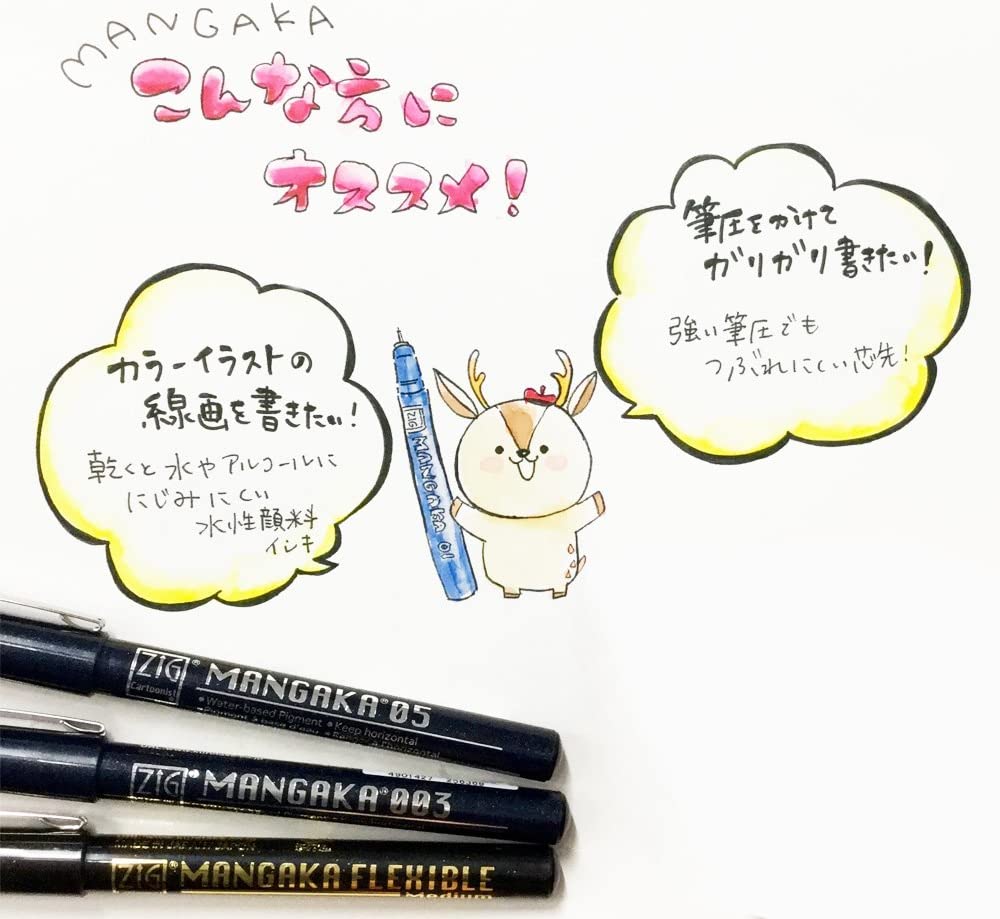 MANGAKA
こんな方に
オススメ!
筆圧をかけて
ガリガリ書きたい!
強い筆圧でも
つぶれにくい芯先!
カラーイラストの
線画を書きたい!
乾くと水やアルコールに
にじみにくい
水性顔料
インキ
ZIG MANGAKA 01
ZIG® MANGAKA® 05
Cartoonist
• Water-based Pigment • Keep horizontal
ZIG® MANGAKA® 003
4901427
ZIG® MANGAKA FLEXIBLE
Medium